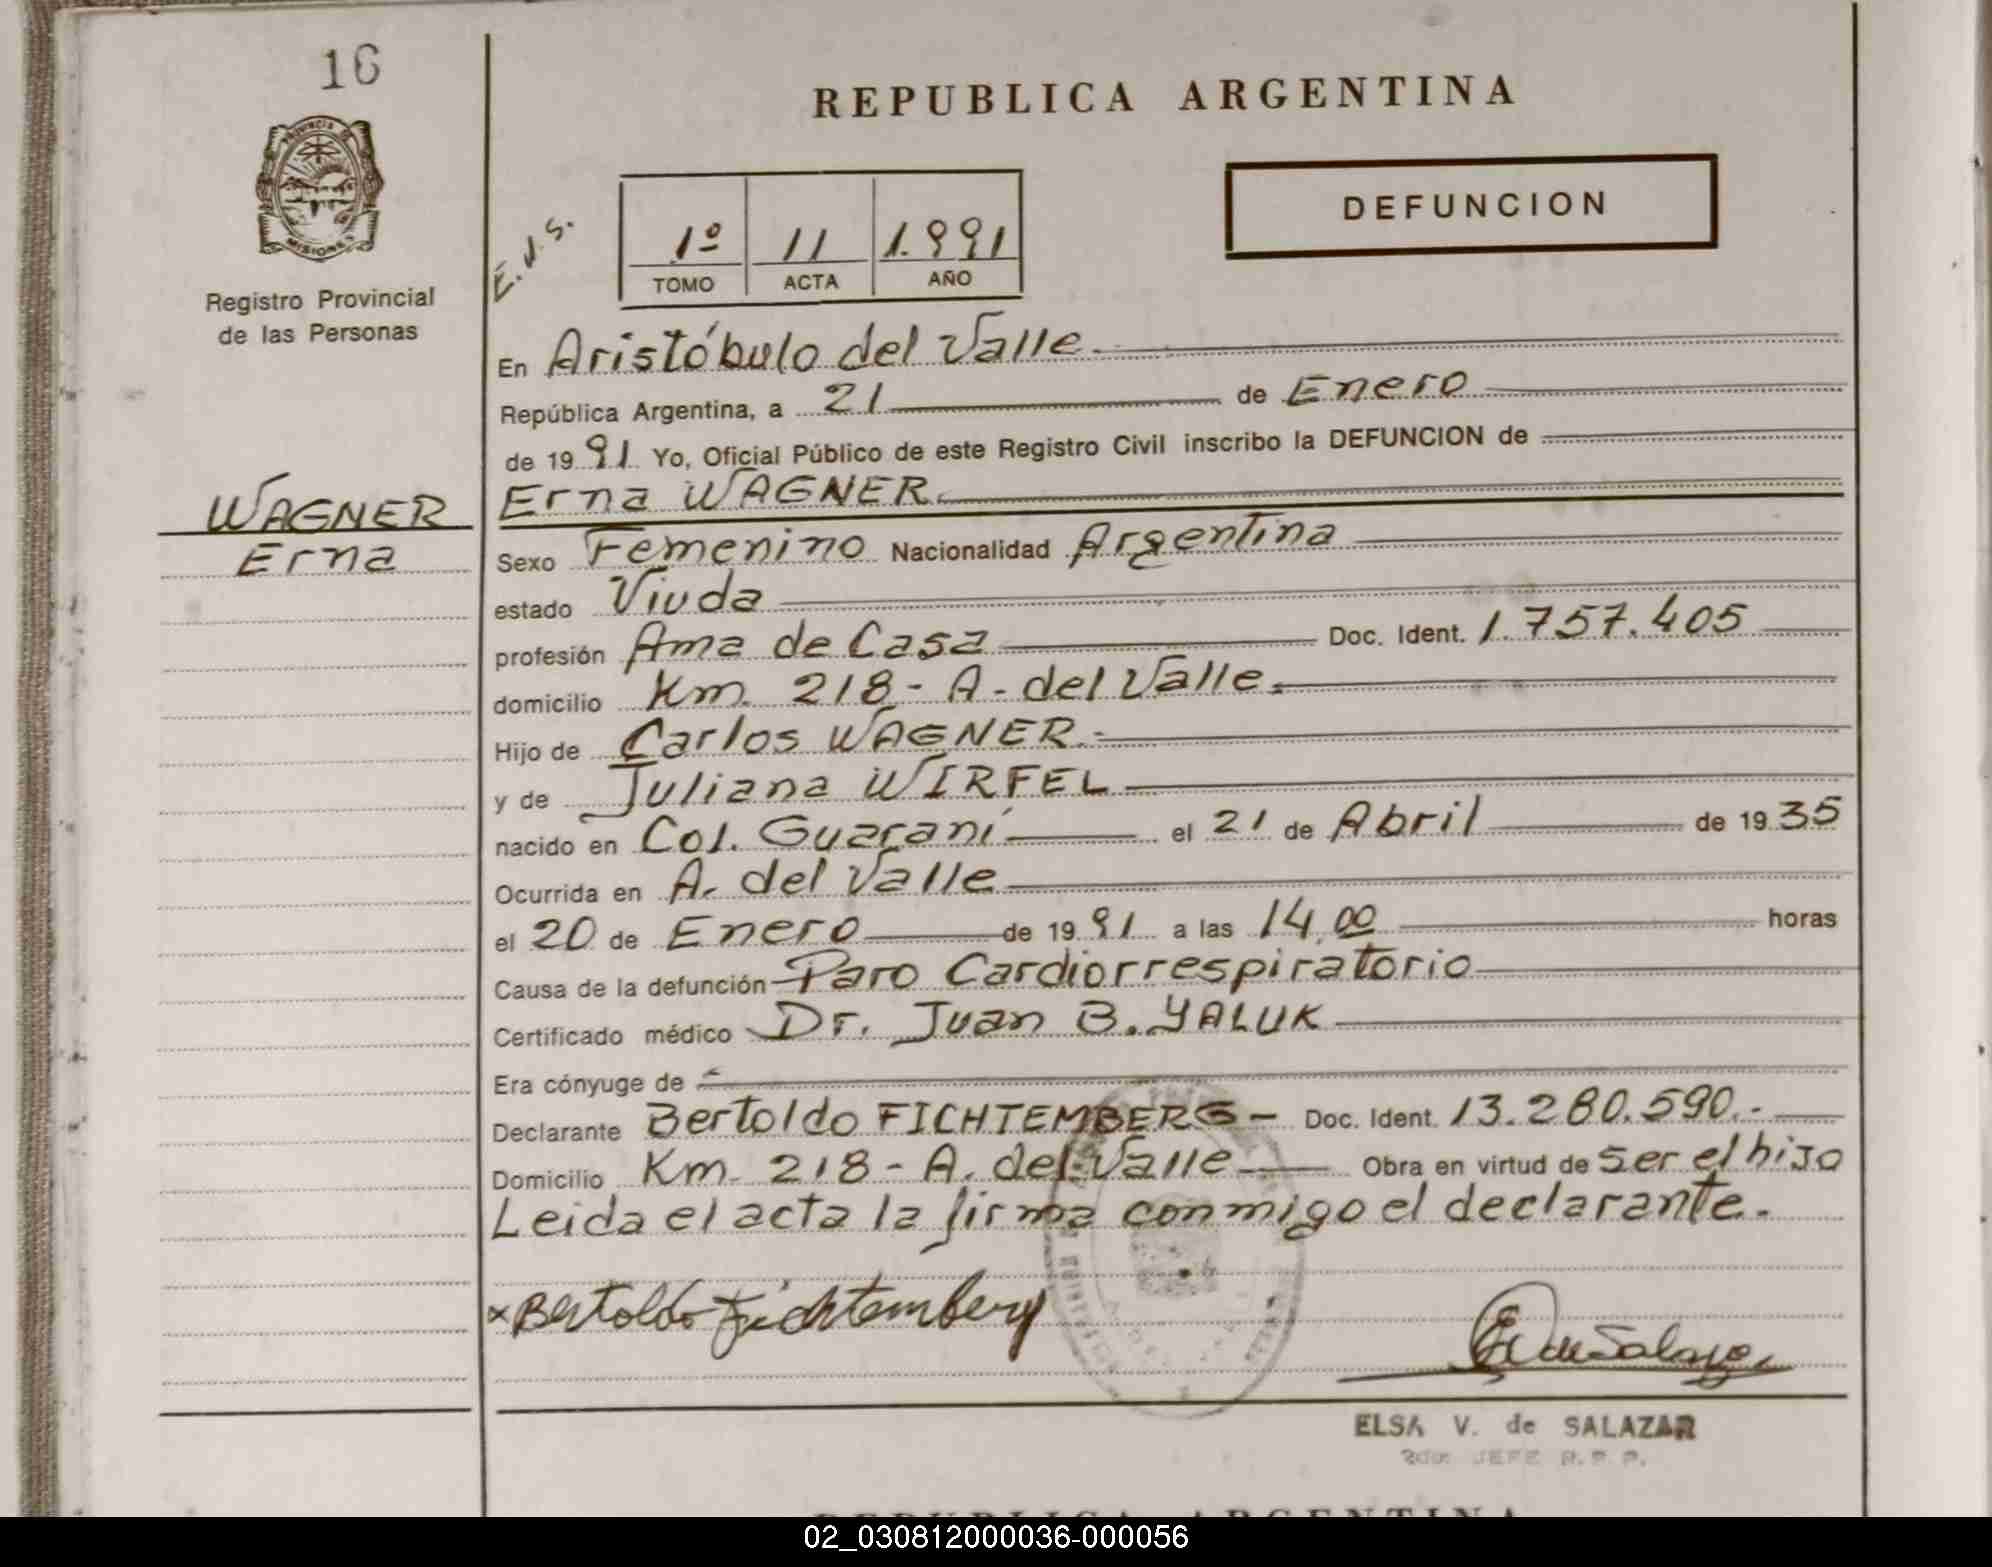 16
REPUBLICA ARGENTINA
DEFUNCION
PROVINCIA DE
MISIONES
Registro Provincial
de las Personas
E.J.S.
1º 11 1.991
TOMO ACTA AÑO
En Aristóbulo del Valle.
República Argentina, a 21 de Enero
de 1991 Yo, Oficial Público de este Registro Civil inscribo la DEFUNCION de
WAGNER
Erna
Erna WAGNER.
Sexo Femenino Nacionalidad Argentina
estado Viuda
profesión Ama de Casa Doc. Ident. 1.757.405
domicilio Km. 218 - A. del Valle.
Hijo de Carlos WAGNER.-
y de Juliana WIRFEL
nacido en Col. Guaraní el 21 de Abril de 1935
Ocurrida en A. del Valle
el 20 de Enero de 1991 a las 14,00 horas
Causa de la defunción Paro Cardiorrespiratorio
Certificado médico Dr. Juan B. YALUK
Era cónyuge de -
Declarante Bertoldo FICHTEMBERG - Doc. Ident. 13.280.590.-
Domicilio Km. 218 - A. del Valle Obra en virtud de ser el hijo
Leida el acta la firma conmigo el declarante.
x Bertoldo Fichtemberg
E V de Salazar
ELSA V. de SALAZAR
2do. JEFE R.P.P.
REPUBLICA ARGENTINA
02_030812000036-000056